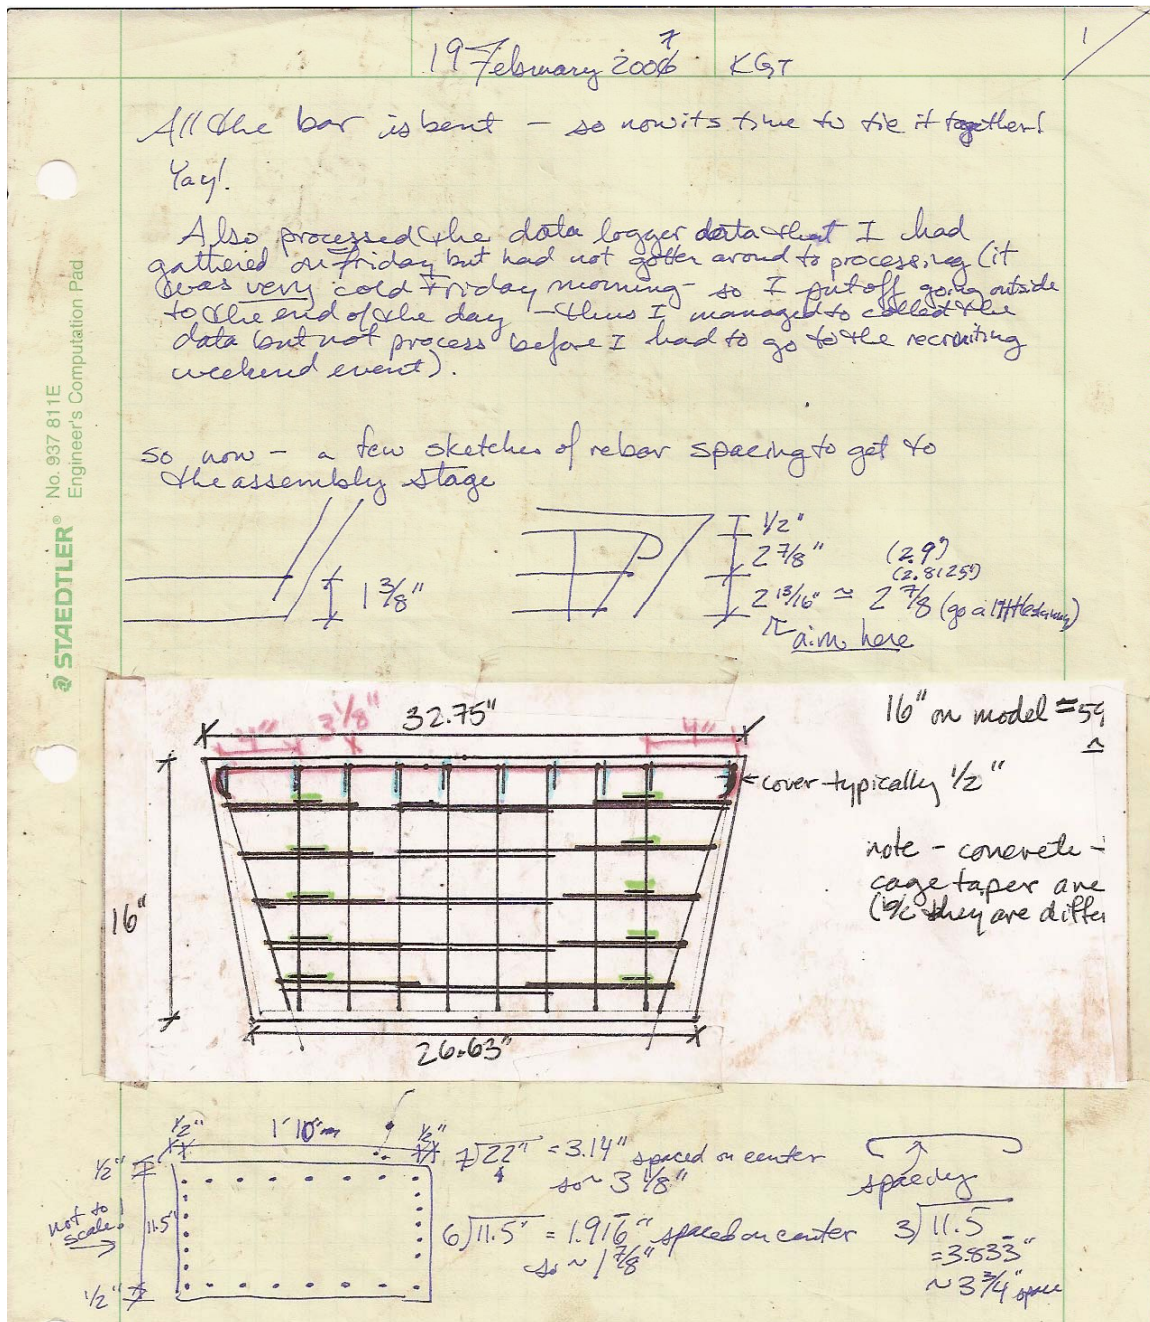 19 February 20067
KGT
1
All the bar is bent - so now its time to tie it together!
Yay!
Also processed the data logger data that I had
gathered on Friday but had not gotten around to processing (it
was very cold Friday morning - so I put off going outside
to the end of the day - thus I managed to collect the
data but not process before I had to go to the recruiting
weekend event).
so now - a few sketches of rebar spacing to get to
the assembly stage
STAEDTLER® No. 937 811E
Engineer's Computation Pad
1 3/8"
1/2"
2 7/8" (2.9")
(2.8125")
2 13/16" ≃ 2 7/8 (go a little skinny)
aim here
32.75"
4"
3 1/8"
4"
16" on model = 59
cover typically 1/2"
note - concrete -
cage taper are
(b/c they are differ
16"
26.63"
1/2"
1' 10"
1/2"
1/2"
11.5"
1/2"
not to
scale!
7)22" = 3.14" spaced on center
so ~ 3 1/8"
6)11.5" = 1.916" spaced on center
so ~ 1 7/8"
spacing
3)11.5
= 3.833"
~ 3 3/4" space